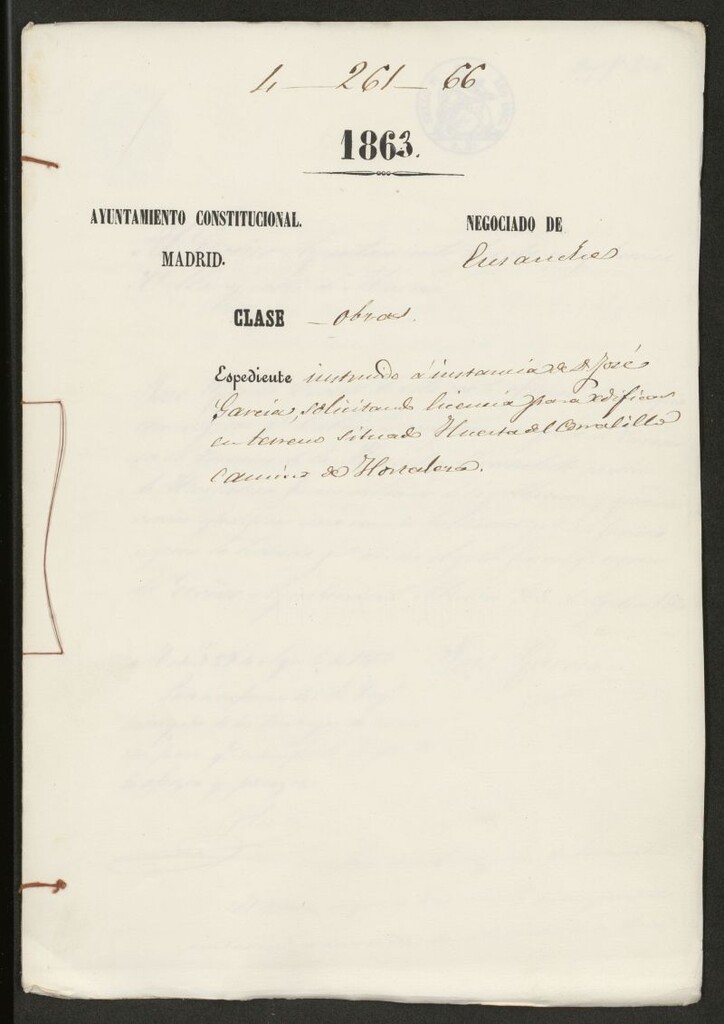 4 — 261 — 66
1863.
AYUNTAMIENTO CONSTITUCIONAL.
MADRID.
NEGOCIADO DE
Ensanches
CLASE — Obras.
Espediente instruido á instancia de D. José
García, solicitando licencia para edificar
en terreno situado Huerta del Corralillo
camino de Hortaleza.